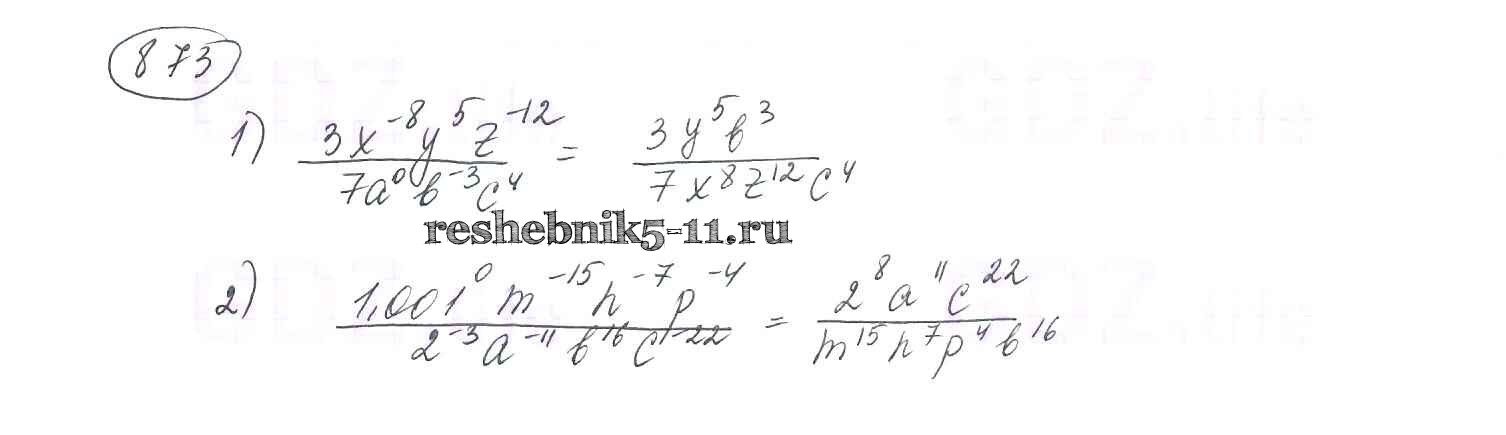 873
1) 3x⁻⁸y⁵z⁻¹² / 7a⁰b⁻³c⁴ = 3y⁵b³ / 7x⁸z¹²c⁴
reshebnik5-11.ru
2) 1,001⁰m⁻¹⁵n⁻⁷p⁻⁴ / 2⁻³a⁻¹¹b¹⁶c⁻²² = 2⁸a¹¹c²² / m¹⁵n⁷p⁴b¹⁶